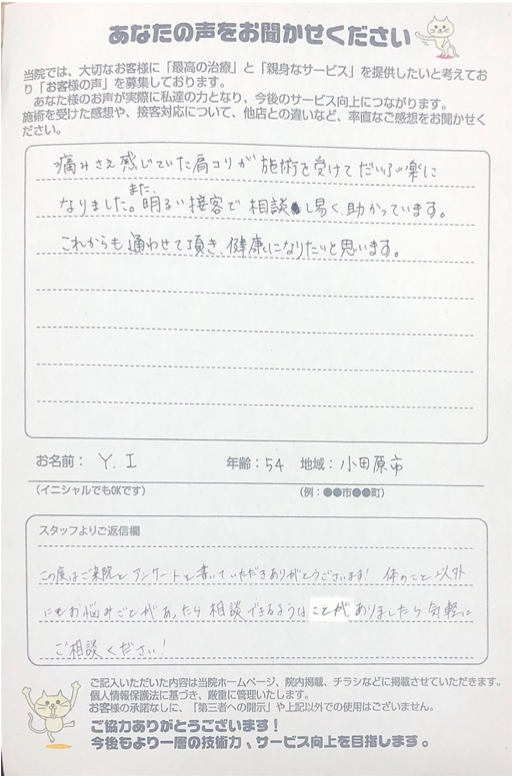 あなたの声をお聞かせください
当院では、大切なお客様に「最高の治療」と「親身なサービス」を提供したいと考えてお
り「お客様の声」を募集しております。
あなた様のお声が実際に私達の力となり、今後のサービス向上につながります。
施術を受けた感想や、接客対応について、他店との違いなど、率直なご感想をお聞かせく
ださい。
痛みさえ感じていた肩コリが施術を受けてだいぶ楽に
なりました。また、明るい接客で相談し易く助かっています。
これからも通わせて頂き、健康になりたいと思います。
お名前： Y.I 年齢：54 地域：小田原市
（イニシャルでもOKです） （例：●●市●●町）
スタッフよりご返信欄
この度はご来院とアンケートを書いていただきありがとうございます！ 体のこと以外
にもお悩みごとがあったら相談できるようなことがありましたら気軽に
ご相談ください！
ご記入いただいた内容は当院ホームページ、院内掲載、チラシなどに掲載させていただきます。
個人情報保護法に基づき、厳重に管理いたします。
お客様の承諾なしに、「第三者への開示」や上記以外での使用はございません。
ご協力ありがとうございます！
今後もより一層の技術力、サービス向上を目指します。